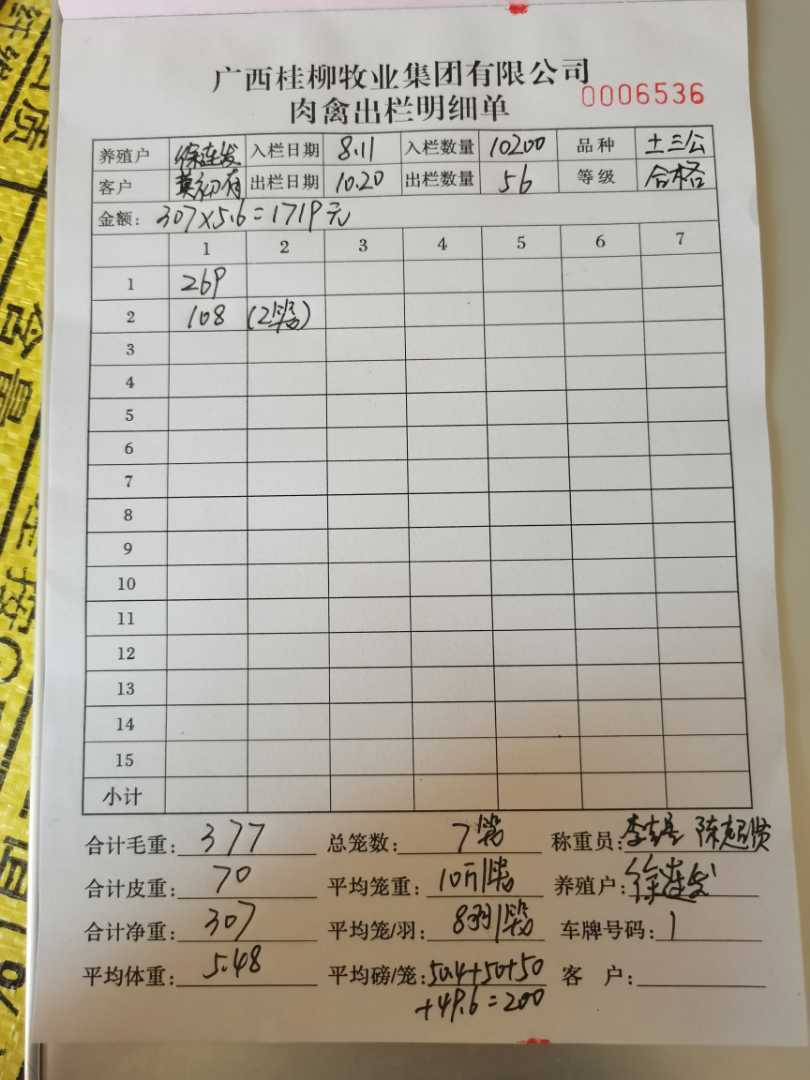 广西桂柳牧业集团有限公司
肉禽出栏明细单 0006536
养殖户 徐连发 入栏日期 8.11 入栏数量 10200 品种 土三公
客户 莫初有 出栏日期 10.20 出栏数量 56 等级 合格
金额: 307×5.6=1719元
1 2 3 4 5 6 7
1 269
2 108 (2笼)
3
4
5
6
7
8
9
10
11
12
13
14
15
小计
合计毛重: 377 总笼数: 7笼 称重员: 陈超贤
合计皮重: 70 平均笼重: 10斤/笼 养殖户: 徐连发
合计净重: 307 平均笼/羽: 8羽/笼 车牌号码: 1
平均体重: 5.48 平均磅/笼: 50.4+50+50 客 户:
+49.6=200